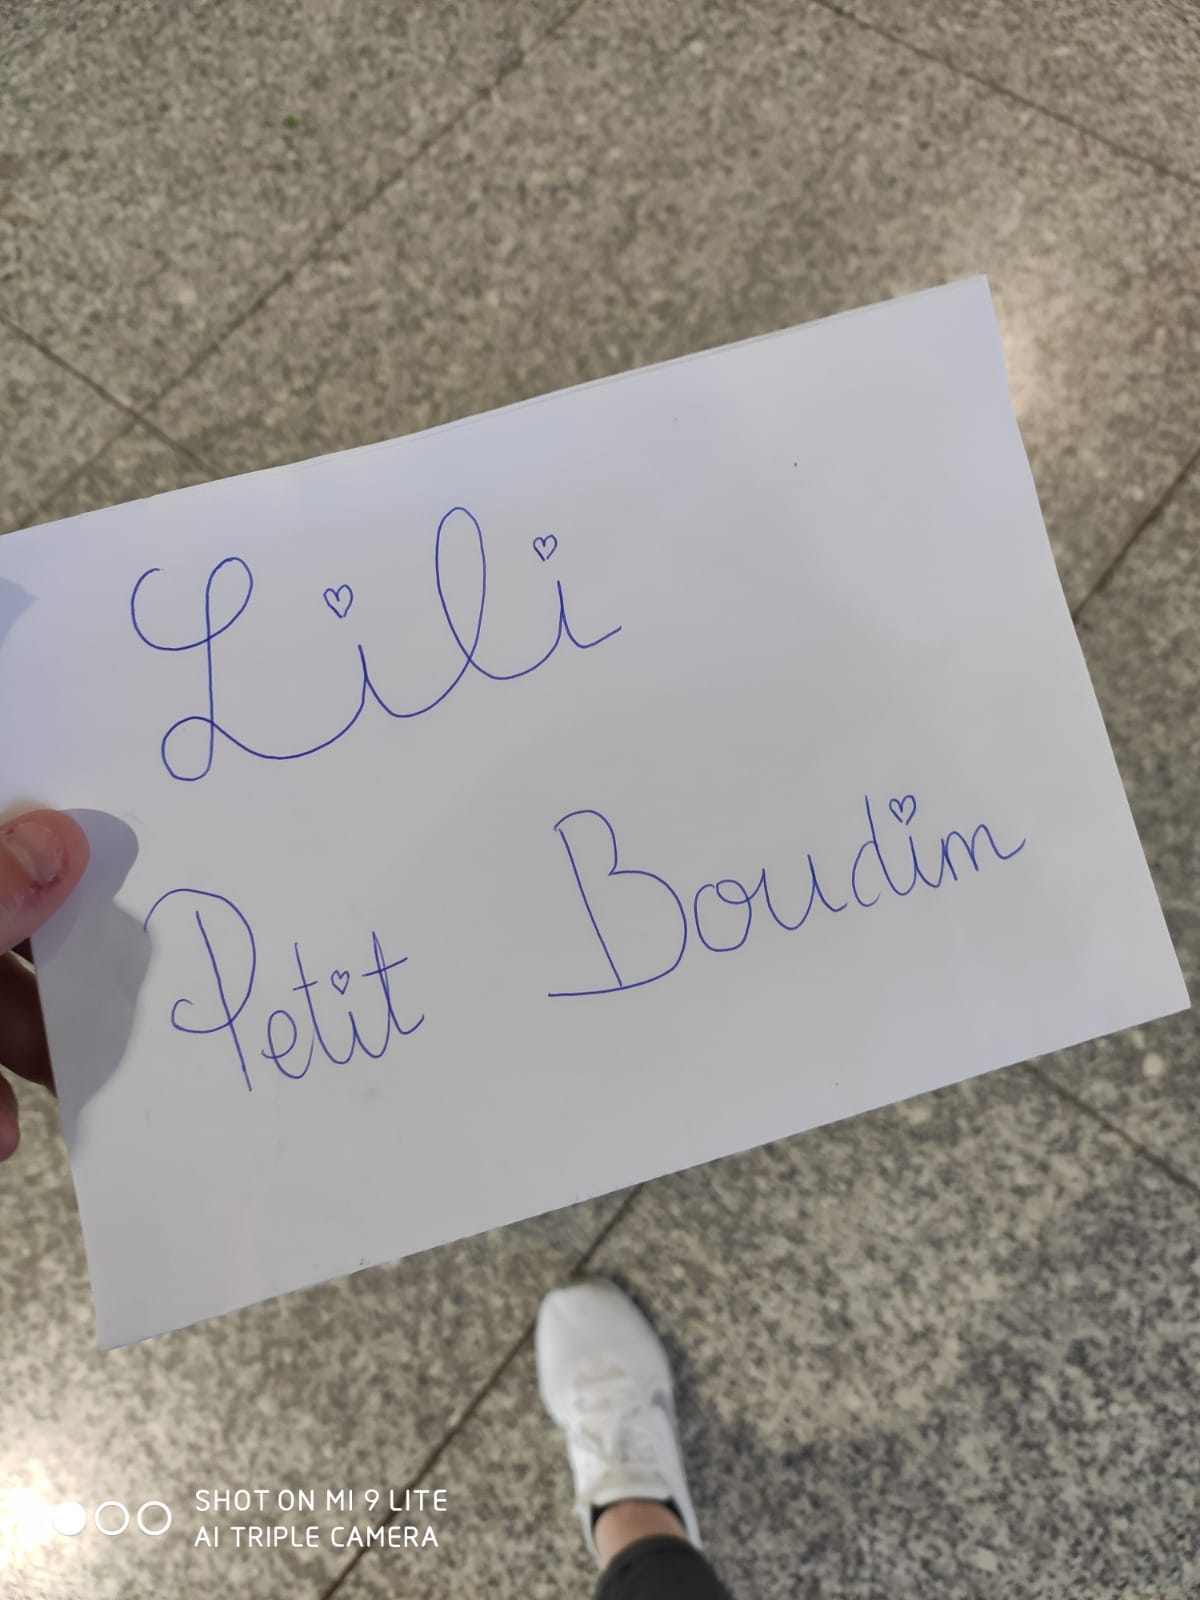 Lili
Petit Boudim
SHOT ON MI 9 LITE
AI TRIPLE CAMERA